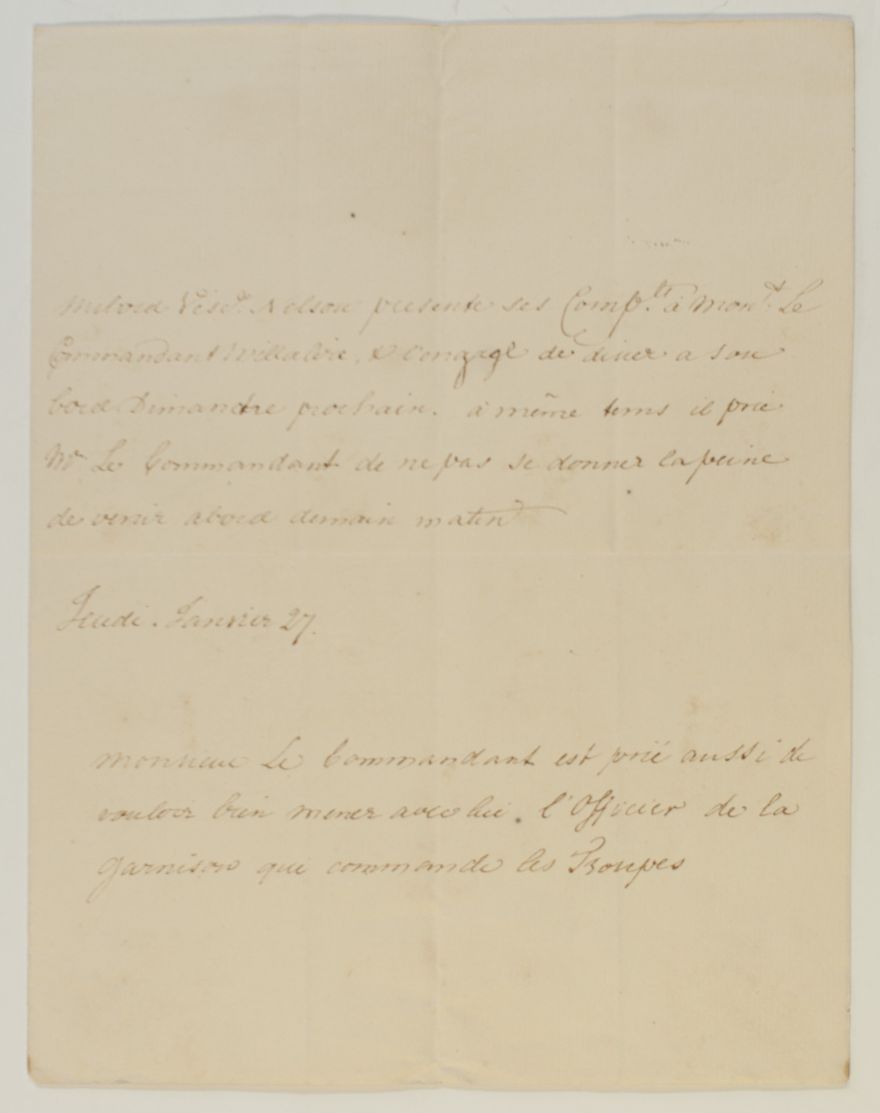 Milord Visc.t Nelson presente ses Comp.ts à Mon.r Le
Commandant Millelire, & l'engage de diner a son
bord Dimanche prochain. à même tems il prie
M.r Le Commandant de ne pas se donner la peine
de venir abord demain matin
Jeudi. Janvier 27.
Monsieur Le Commandant est prié aussi de
vouloir bien mener avec lui. l'Officier de la
garnison qui commande les Troupes